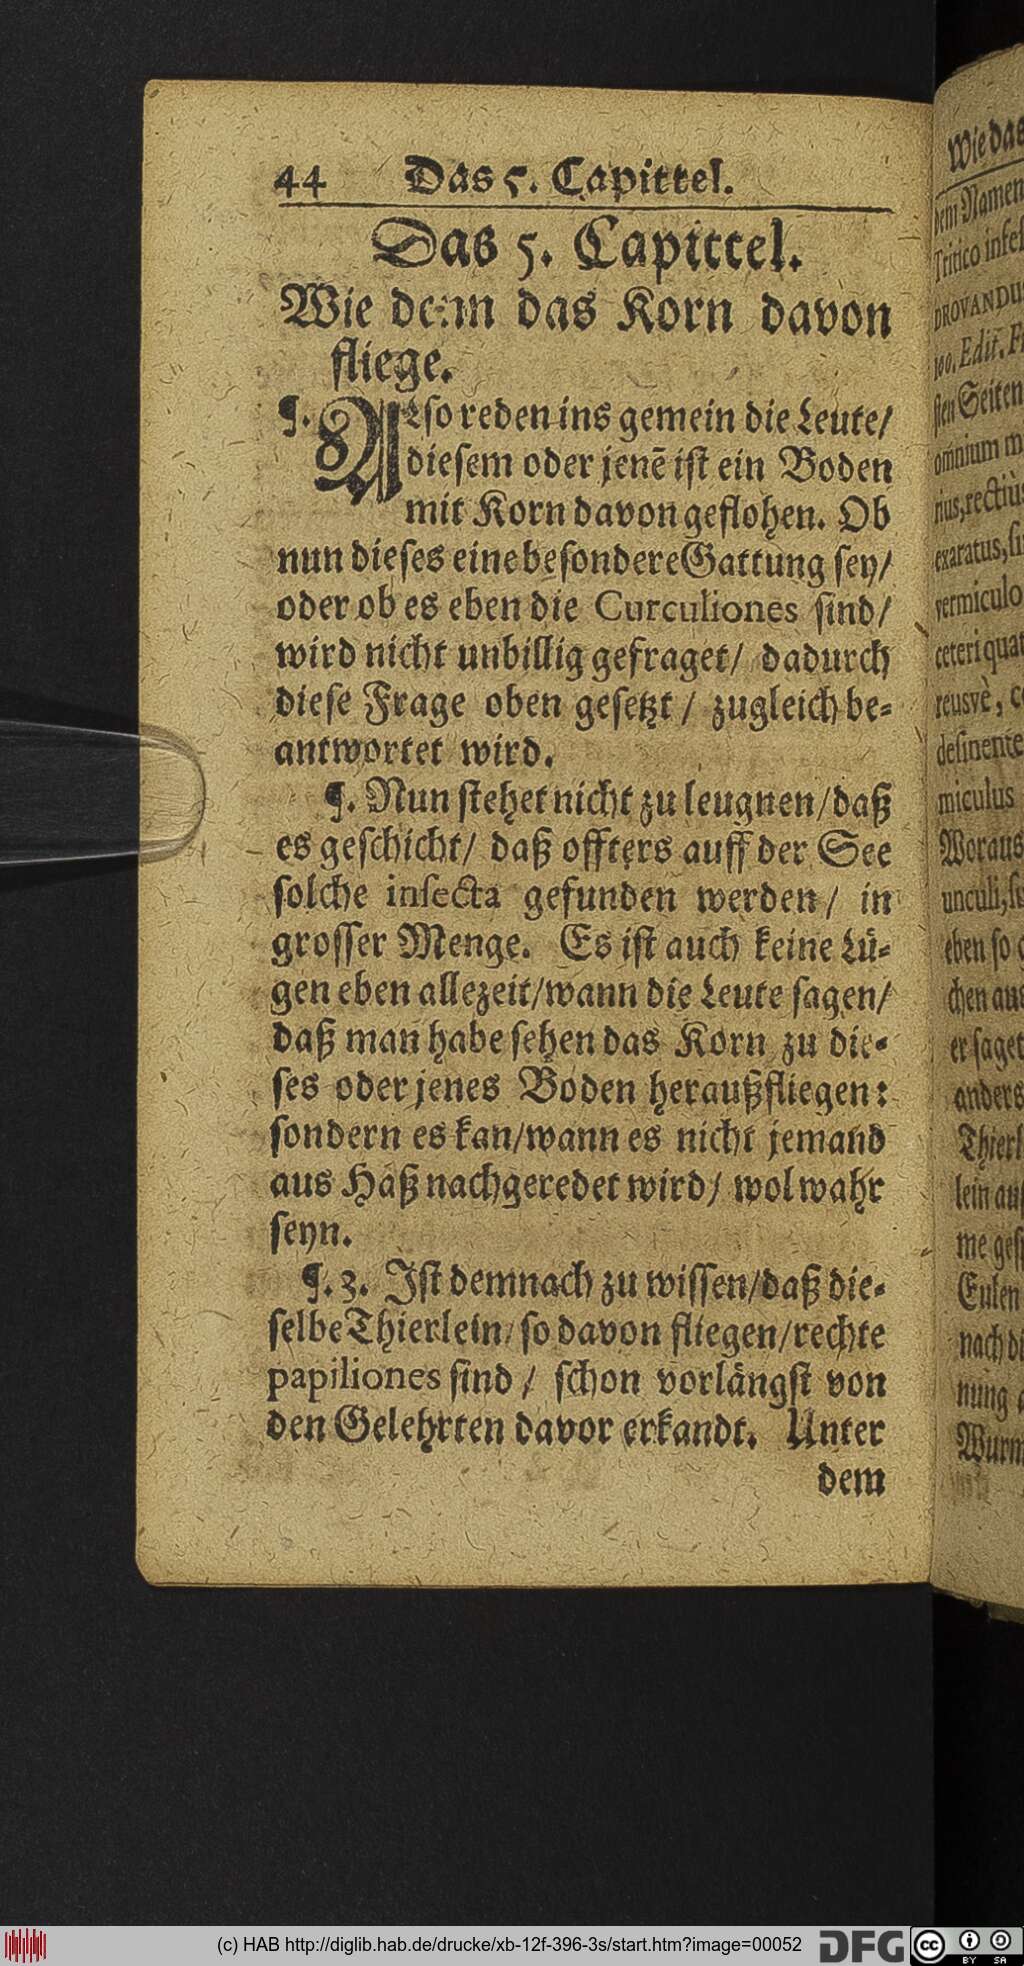 44 Das 5. Capittel.
Das 5. Capittel.
Wie denn das Korn davon
fliege.
¶. ALso reden ins gemein die Leute/
diesem oder jenē ist ein Boden
mit Korn davon geflohen. Ob
nun dieses eine besondere Gattung sey/
oder ob es eben die Curculiones sind/
wird nicht unbillig gefraget/ dadurch
diese Frage oben gesetzt/ zugleich be-
antwortet wird.
¶. Nun stehet nicht zu leugnen/daß
es geschicht/ daß offters auff der See
solche insecta gefunden werden/ in
grosser Menge. Es ist auch keine Lü-
gen eben allezeit/wann die Leute sagen/
daß man habe sehen das Korn zu die-
ses oder jenes Boden heraußfliegen:
sondern es kan/wann es nicht jemand
aus Haß nachgeredet wird/ wol wahr
seyn.
¶. 3. Ist demnach zu wissen/daß die-
selbe Thierlein/so davon fliegen/rechte
papiliones sind/ schon vorlängst von
den Gelehrten davor erkandt. Unter
dem
Wie das
dem Namen
Tritico
100. Edit.
sten Seiten
omnium
exaratus,
vermiculo
ceteri
miculus
Woraus
eben so
er saget
anders
Eulen
nach
nung
Wurm
(c) HAB http://diglib.hab.de/drucke/xb-12f-396-3s/start.htm?image=00052
DFG
cc
BY SA